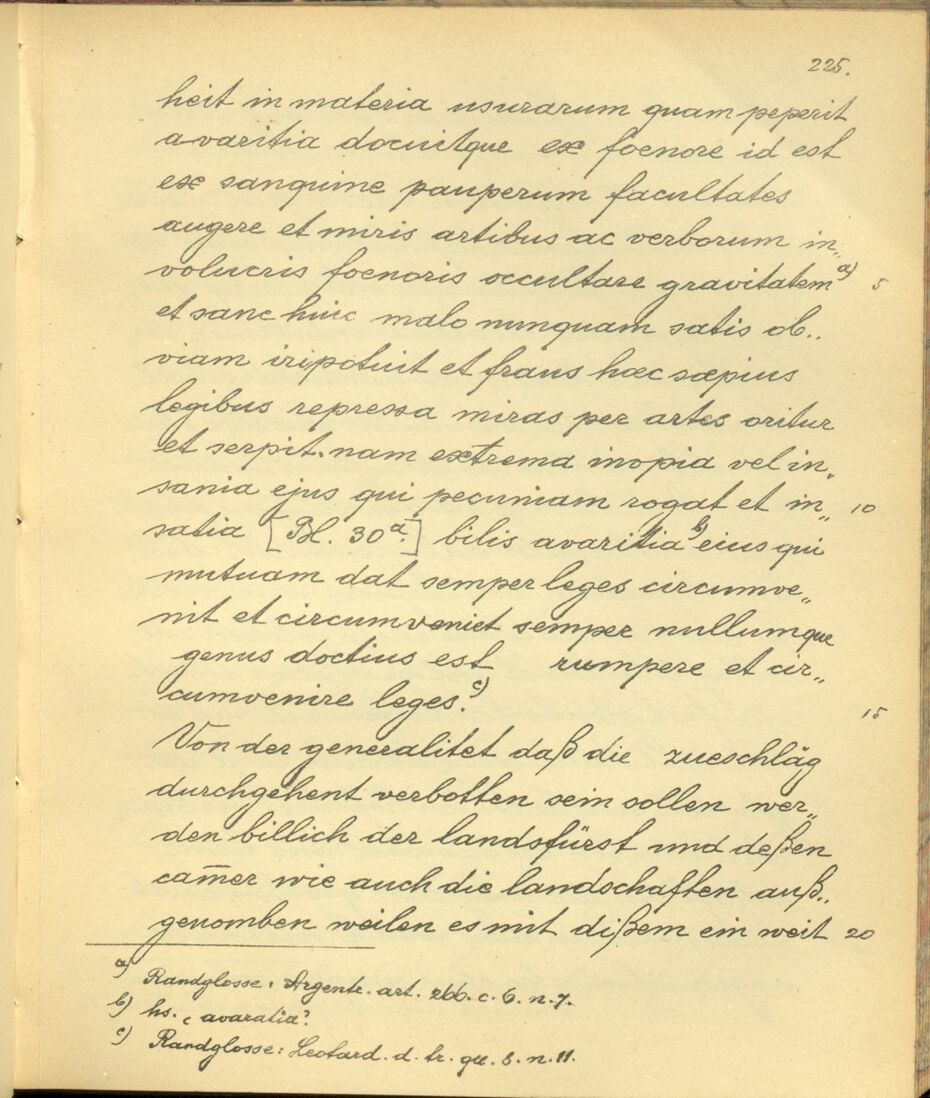 225.
heit in materia usurarum quam peperit
avaritia docuitque ex foenore id est
ex sanguine pauperum facultates
augere et miris artibus ac verborum in„
volucris foenoris occultare gravitatem a) 5
et sane huic malo nunquam satis ob„
viam iri potuit et fraus hæc sæpius
legibus repressa miras per artes oritur
et serpit. nam extrema inopia vel in„
sania ejus qui pecuniam rogat et in„ 10
satia [Bl. 30a.] bilis avaritia b) eius qui
mutuam dat semper leges circumve„
nit et circumveniet semper nullumque
genus doctius est rumpere et cir„
cumvenire leges. c) 15
Von der generalitet daß die zueschläg
durchgehent verbotten sein sollen wer„
den billich der landsfürst und deßen
cam̅er wie auch die landschaften auß„
genomben weilen es mit dißem ein weit 20
a) Randglosse: Argentr. art. 266. c. 6. n. 7.
b) hs. „avaratia“.
c) Randglosse: Leotard. d. tr. qu. 8. n. 11.